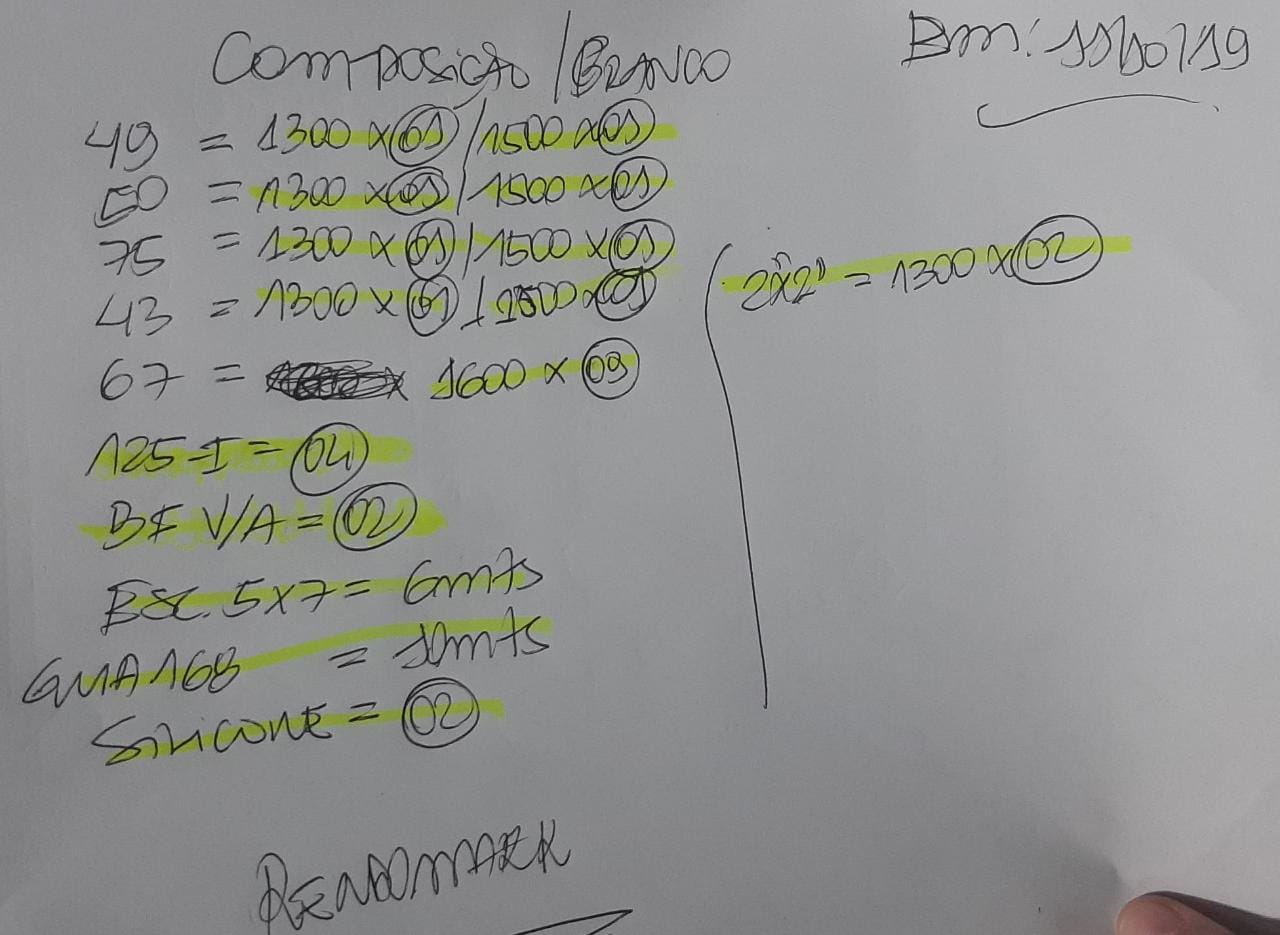 Composição / BRANCO
Bm: 11/10/19
49 = 1300 x 01 / 1500 x 01
50 = 1300 x 01 / 1500 x 01
75 = 1300 x 01 / 1500 x 01
43 = 1300 x 01 / 1500 x 01
2"x2" = 1300 x 02
67 = 1600 x 09
125-I = 04
BF V/A = 02
Esc. 5x7 = 6mts
GUA168 = 10mts
Silicone = 02
RENDOMARK